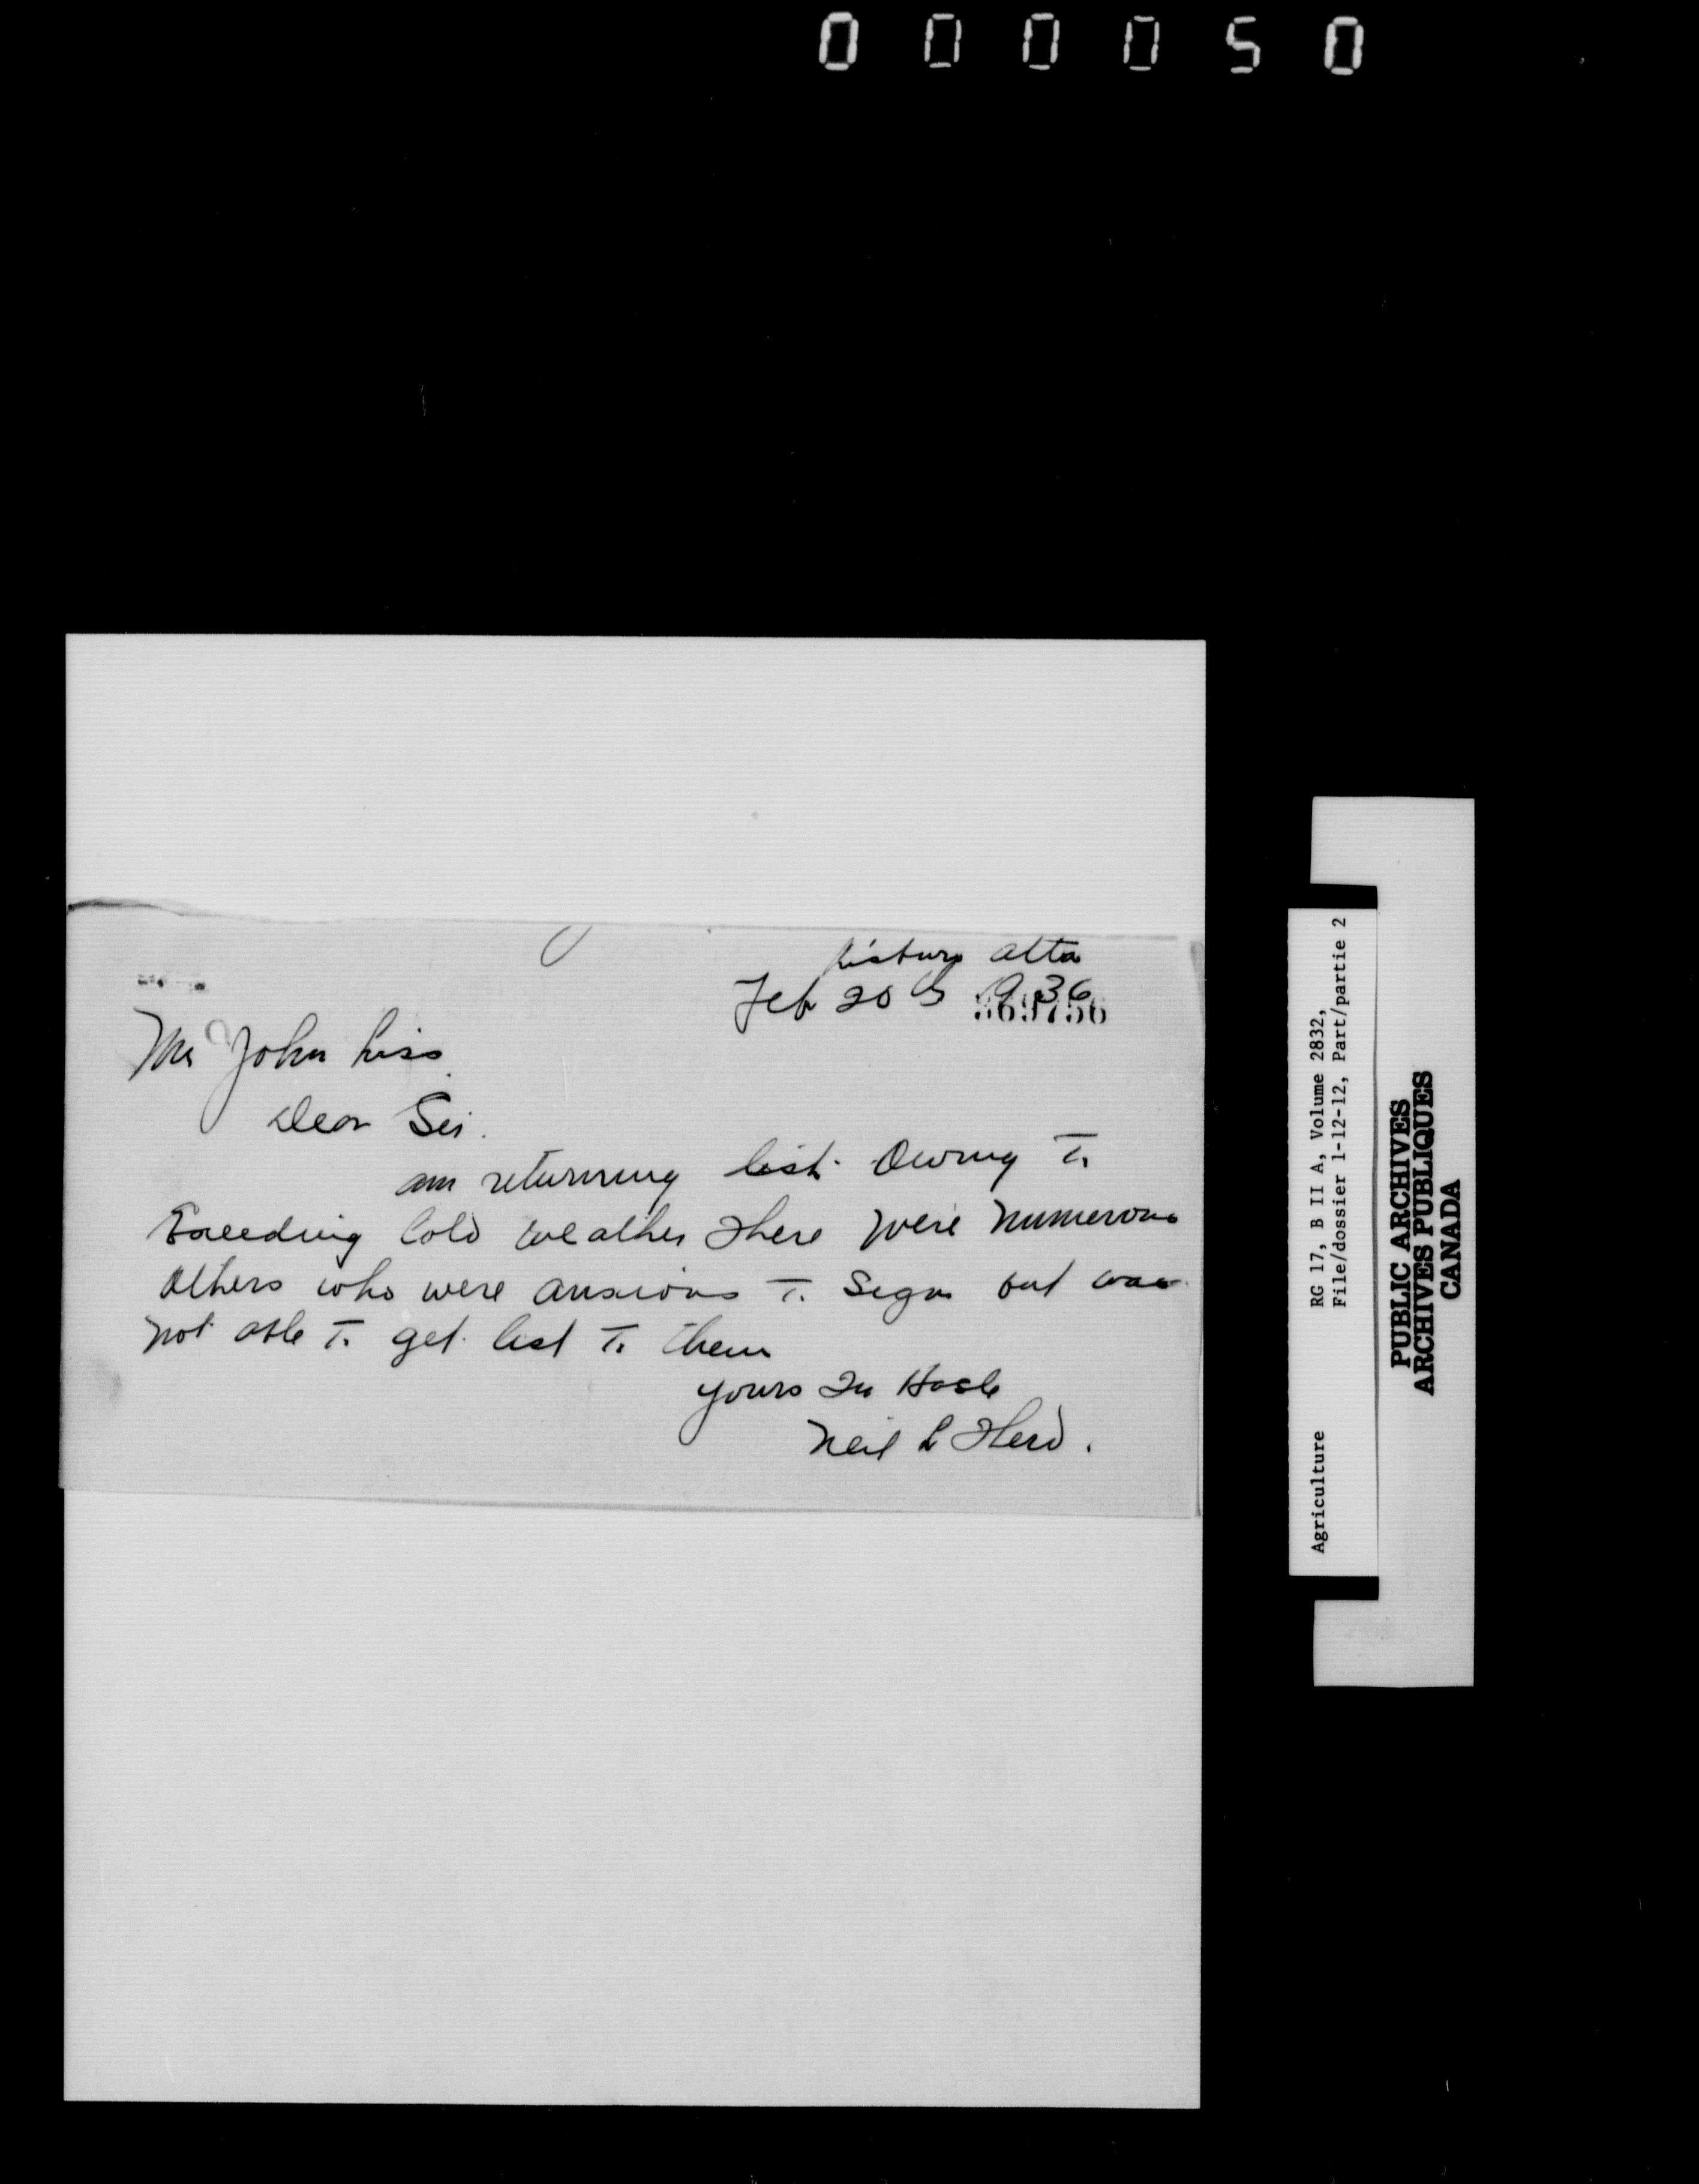 000050
Lisburn Alta
Feb 20 1936
369756
Mr John Liss
Dear Sir.
am returning list. Owing To
Exceeding Cold weather There were numerous
others who were anxious To Sign but was
not able To get list To them
yours In Haste
Neil L Herd.
Agriculture RG 17, B II A, Volume 2832,
File/dossier 1-12-12, Part/partie 2
PUBLIC ARCHIVES
ARCHIVES PUBLIQUES
CANADA